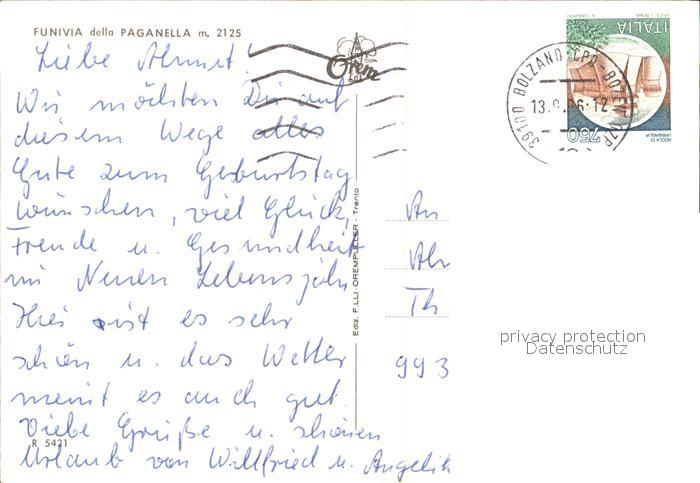 FUNIVIA della PAGANELLA m. 2125
Liebe Almut!
Wir möchten Dir auf
diesem Wege alles
Gute zum Geburtstag
wünschen, viel Glück,
Freude u. Gesundheit
im Neuen Lebensjahr
Hier ist es sehr
schön u. das Wetter
meint es auch gut.
Viebe Grüße u. schönen
Urlaub von Willfried u. Angelik
R 5421
Orem
Ediz. F.LLI OREMPULLER - Trento
39100 BOLZANO CPO - BOZEN
13.9.96-12
ITALIA
750
ROCCA DI
URBISAGLIA
An
Th
993
privacy protection
Datenschutz